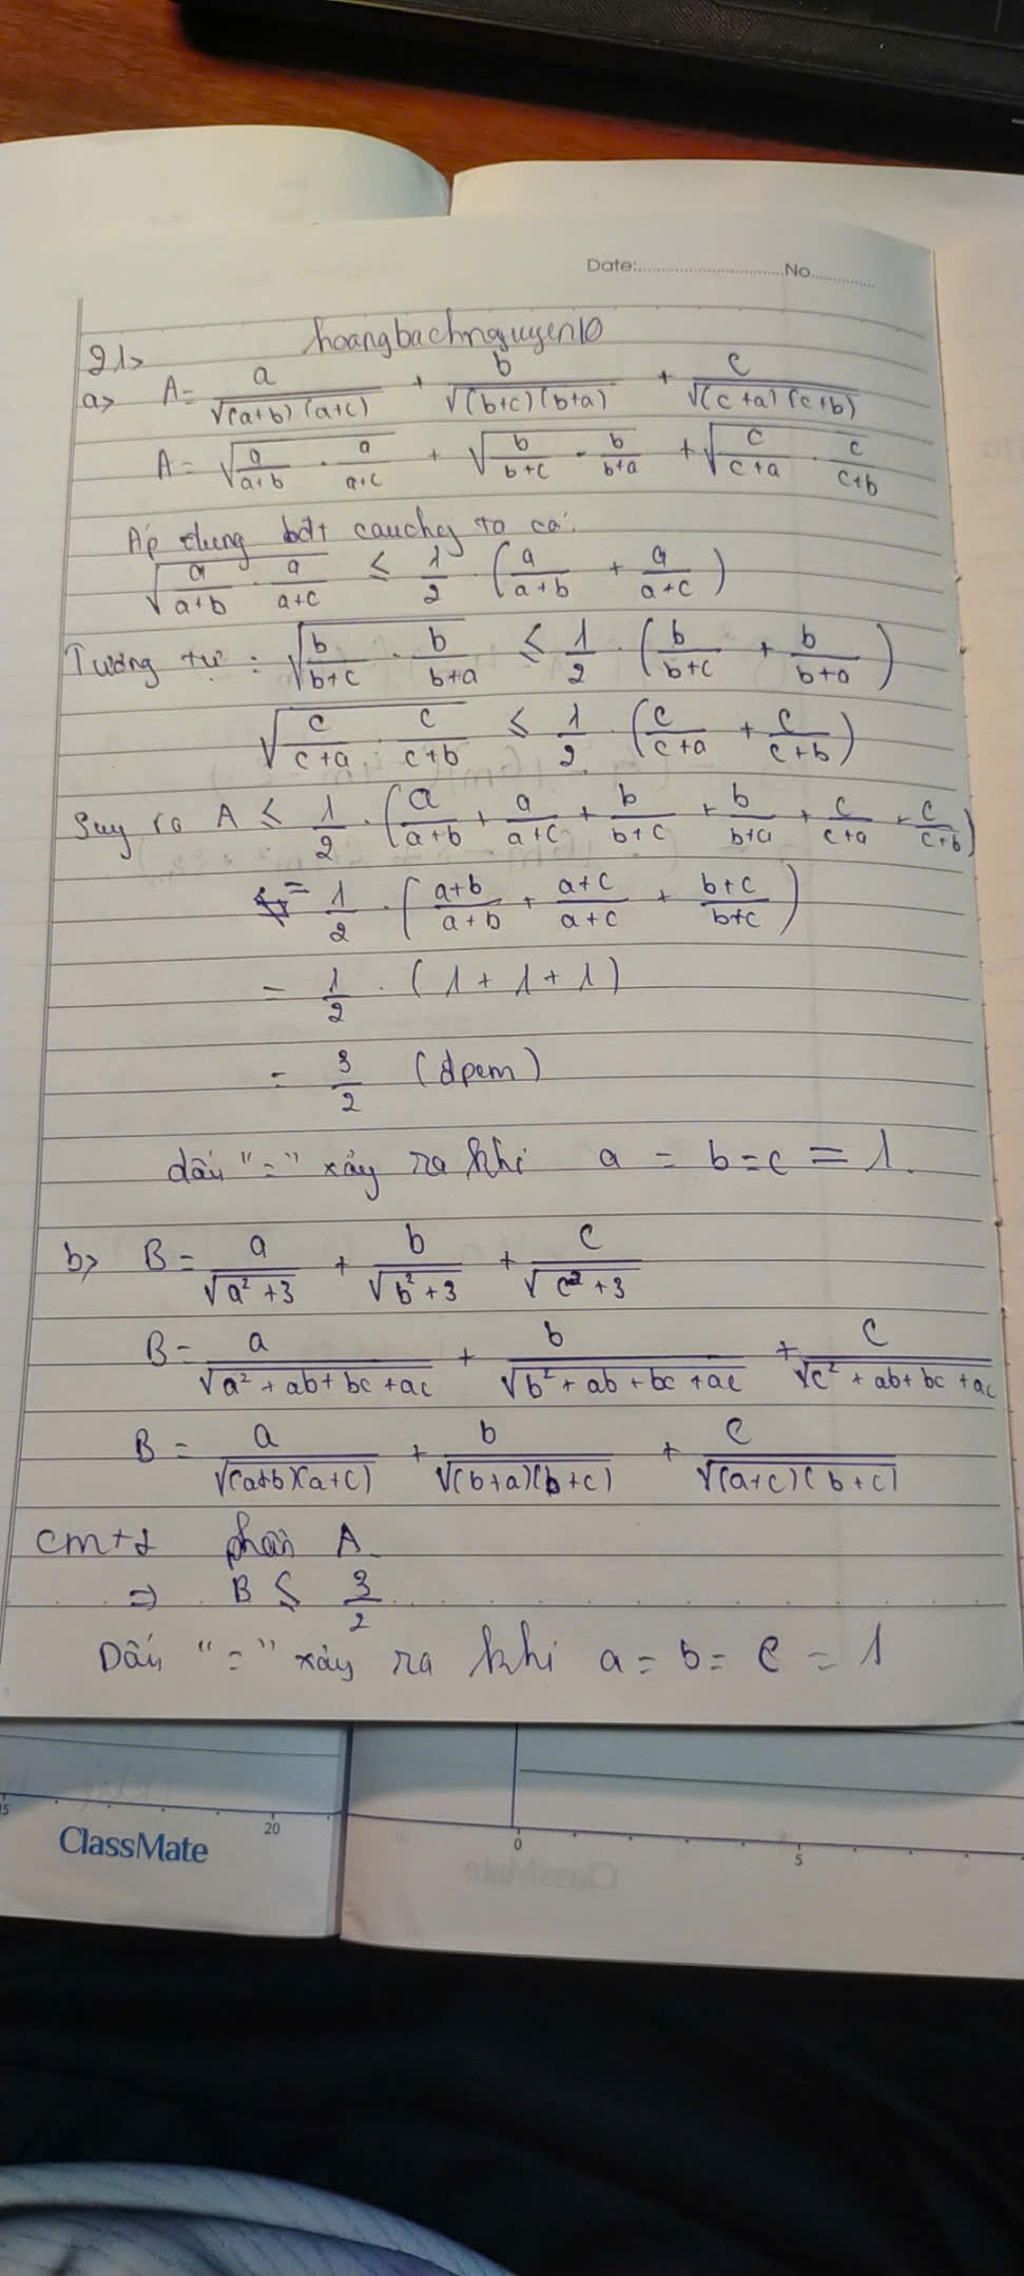 Date:..............................No..............
21>
hoangbachnguyen10
a> A = a/√(a+b)(a+c) + b/√(b+c)(b+a) + c/√(c+a)(c+b)
A = √(a/a+b · a/a+c) + √(b/b+c · b/b+a) + √(c/c+a · c/c+b)
Áp dụng bđt cauchy ta có:
√(a/a+b · a/a+c) ≤ 1/2 · (a/a+b + a/a+c)
Tương tự : √(b/b+c · b/b+a) ≤ 1/2 · (b/b+c + b/b+a)
√(c/c+a · c/c+b) ≤ 1/2 · (c/c+a + c/c+b)
Suy ra A ≤ 1/2 · (a/a+b + a/a+c + b/b+c + b/b+a + c/c+a + c/c+b)
= 1/2 · (a+b/a+b + a+c/a+c + b+c/b+c)
= 1/2 · (1 + 1 + 1)
= 3/2 (đpcm)
dấu "=" xảy ra khi a = b = c = 1.
b> B = a/√a²+3 + b/√b²+3 + c/√c²+3
B = a/√a²+ab+bc+ac + b/√b²+ab+bc+ac + c/√c²+ab+bc+ac
B = a/√(a+b)(a+c) + b/√(b+a)(b+c) + c/√(a+c)(b+c)
cmt phần A
⇒ B ≤ 3/2
Dấu "=" xảy ra khi a = b = c = 1
15 20
ClassMate
0 5